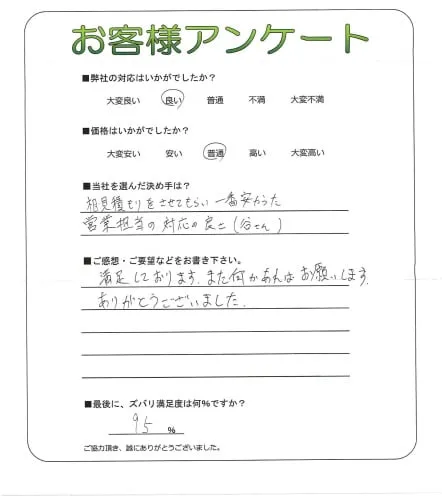 お客様アンケート
■弊社の対応はいかがでしたか?
大変良い 良い 普通 不満 大変不満
■価格はいかがでしたか?
大変安い 安い 普通 高い 大変高い
■当社を選んだ決め手は?
相見積もりをさせてもらい一番安かった
営業担当の対応の良さ(谷さん)
■ご感想・ご要望などをお書き下さい。
満足しております。また何かあればお願いします。
ありがとうございました。
■最後に、ズバリ満足度は何%ですか?
95 %
ご協力頂き、誠にありがとうございました。